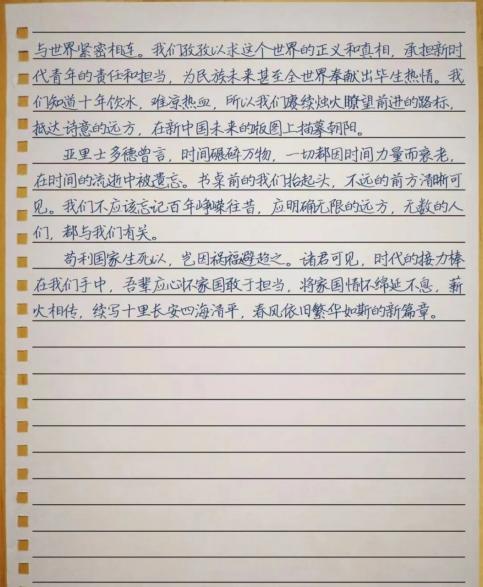 与世界紧密相连。我们孜孜以求这个世界的正义和真相，承担新时
代青年的责任和担当，为民族未来甚至全世界奉献出毕生热情。我
们知道十年饮冰，难凉热血，所以我们赓续烛火瞭望前进的路标，
抵达诗意的远方，在新中国未来的版图上描摹朝阳。
亚里士多德曾言，时间碾碎万物，一切都因时间力量而衰老，
在时间的流逝中被遗忘。书桌前的我们抬起头，不远的前方清晰可
见。我们不应该忘记百年峥嵘往昔，应明确无限的远方，无数的人
们，都与我们有关。
苟利国家生死以，岂因祸福避趋之。诸君可见，时代的接力棒
在我们手中，吾辈应心怀家国敢于担当，将家国情怀绵延不息，薪
火相传，续写十里长安四海清平，春风依旧繁华如斯的新篇章。